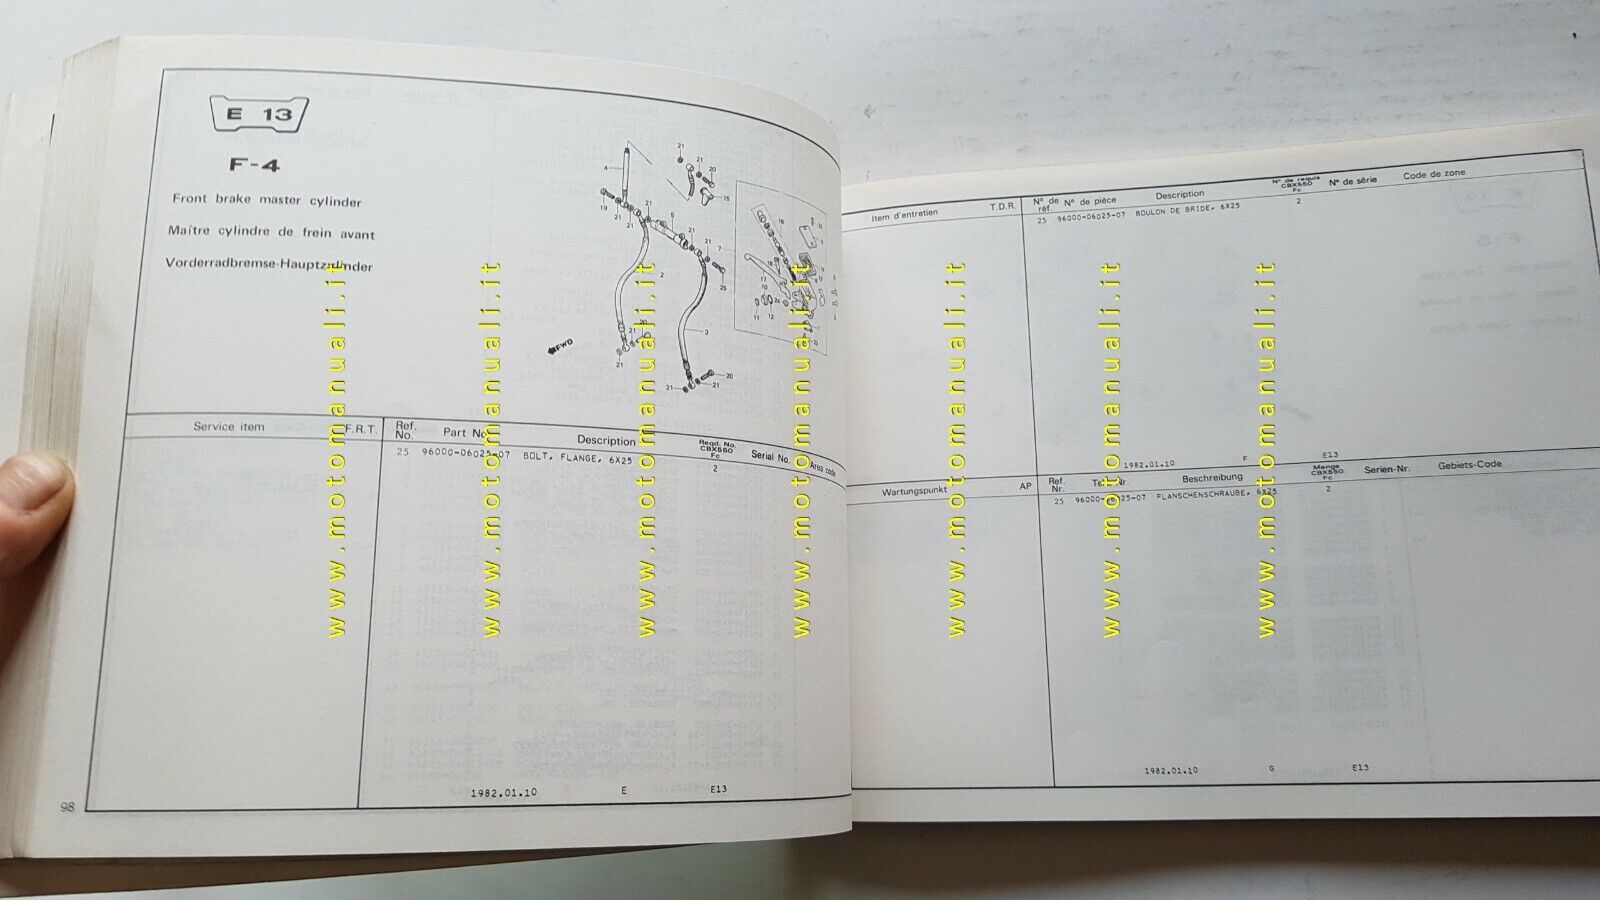 E 13
F-4
Front brake master cylinder
Maître cylindre de frein avant
Vorderradbremse-Hauptzylinder
21
21
20
4
15
19
21
21
21
6
21
21
7
16
2
25
3
FWD
21
20
21
20
21
21
18
17
10
24
11
12
23
Service item F.R.T. Ref. No. Part No. Description Reqd. No. CBX550 Fc Serial No. Area code
25 96000-06025-07 BOLT, FLANGE, 6X25 2
1982.01.10 E E13
98
Item d'entretien T.D.R. N° de réf. N° de pièce Description N° de requis CBX550 Fc N° de série Code de zone
25 96000-06025-07 BOULON DE BRIDE, 6X25 2
1982.01.10 F E13
Wartungspunkt AP Ref. Nr. Nr. Beschreibung Menge CBX550 Fc Serien-Nr. Gebiets-Code
25 96000-06025-07 FLANSCHENSCHRAUBE, 6X25 2
1982.01.10 G E13
www.motomanuali.it
www.motomanuali.it
www.motomanuali.it
www.motomanuali.it
www.motomanuali.it
www.motomanuali.it
www.motomanuali.it